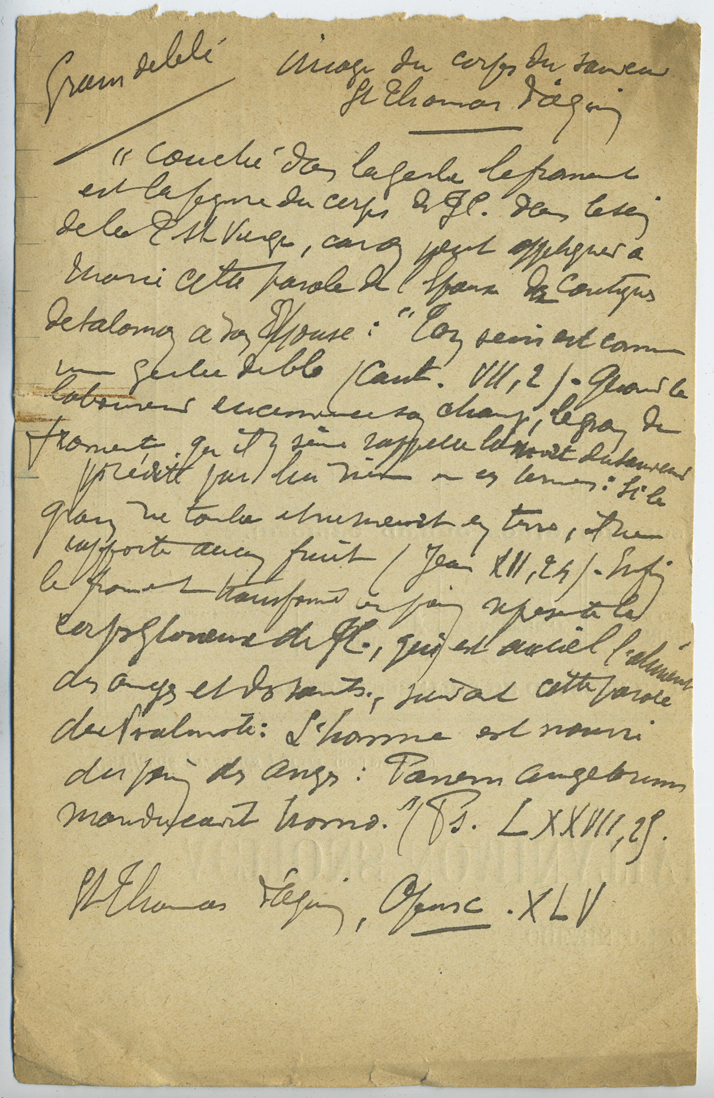 Grain de blé
image du corps du sauveur
St Thomas d'Aquin
"Couché dans la gerbe le froment
est la figure du corps de J.C. dans le sein
de la T. Ste Vierge, car on peut appliquer à
Marie cette parole de l'Epoux des Cantiques
de Salomon à son Epouse : "Ton sein est comme
une gerbe de blé (Cant. VII, 2). Quand le
laboureur ensemence son champ, le grain de
froment qu'il y sème rappelle la mort du sauveur
prédite par lui même en ces termes : Si le
grain ne tombe et ne meurt en terre, il ne
rapporte aucun fruit (Jean XII, 24). Enfin
le froment transformé en pain représente le
corps glorieux de J.C., qui est au ciel l'aliment
des anges et des saints, suivant cette parole
du Psalmiste : L'homme est nourri
du pain des anges : Panem angelorum
manducavit homo." (Ps. LXXVII, 25.
St Thomas d'Aquin, Opusc. XLV